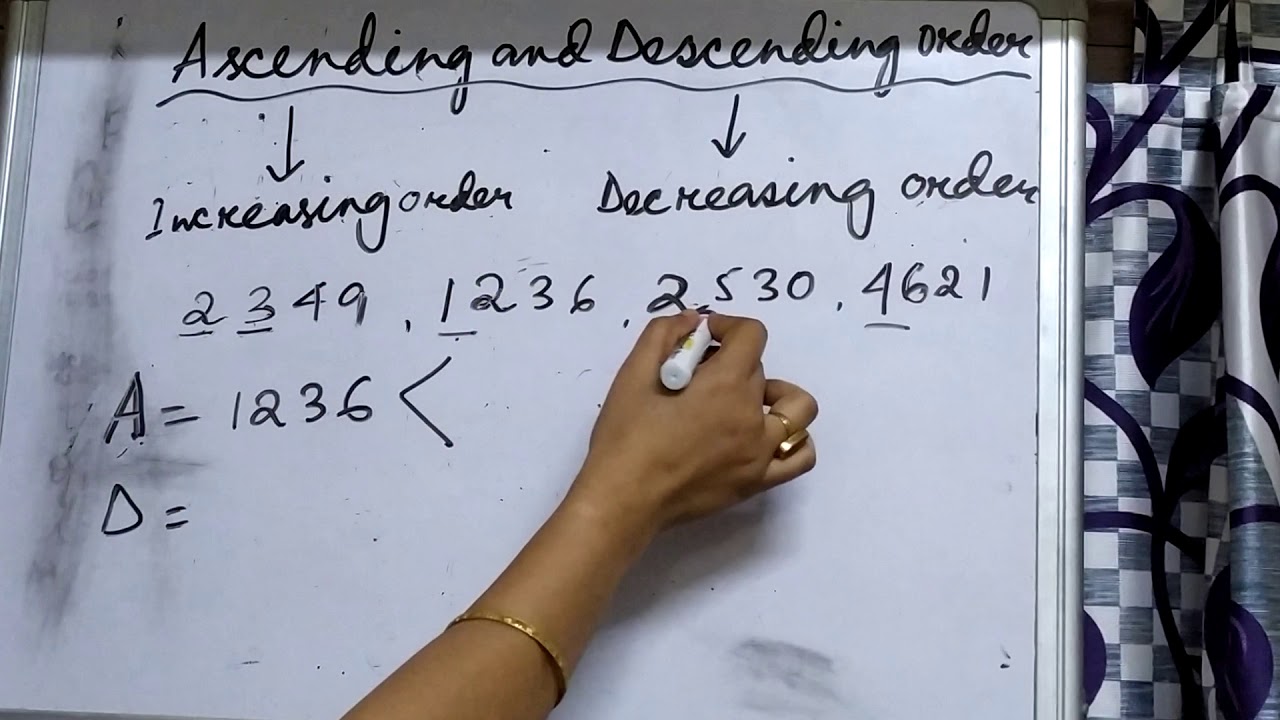 Ascending and Descending order
↓ ↓
Increasing order Decreasing order
2349, 1236, 2530, 4621
A = 1236 <
D =